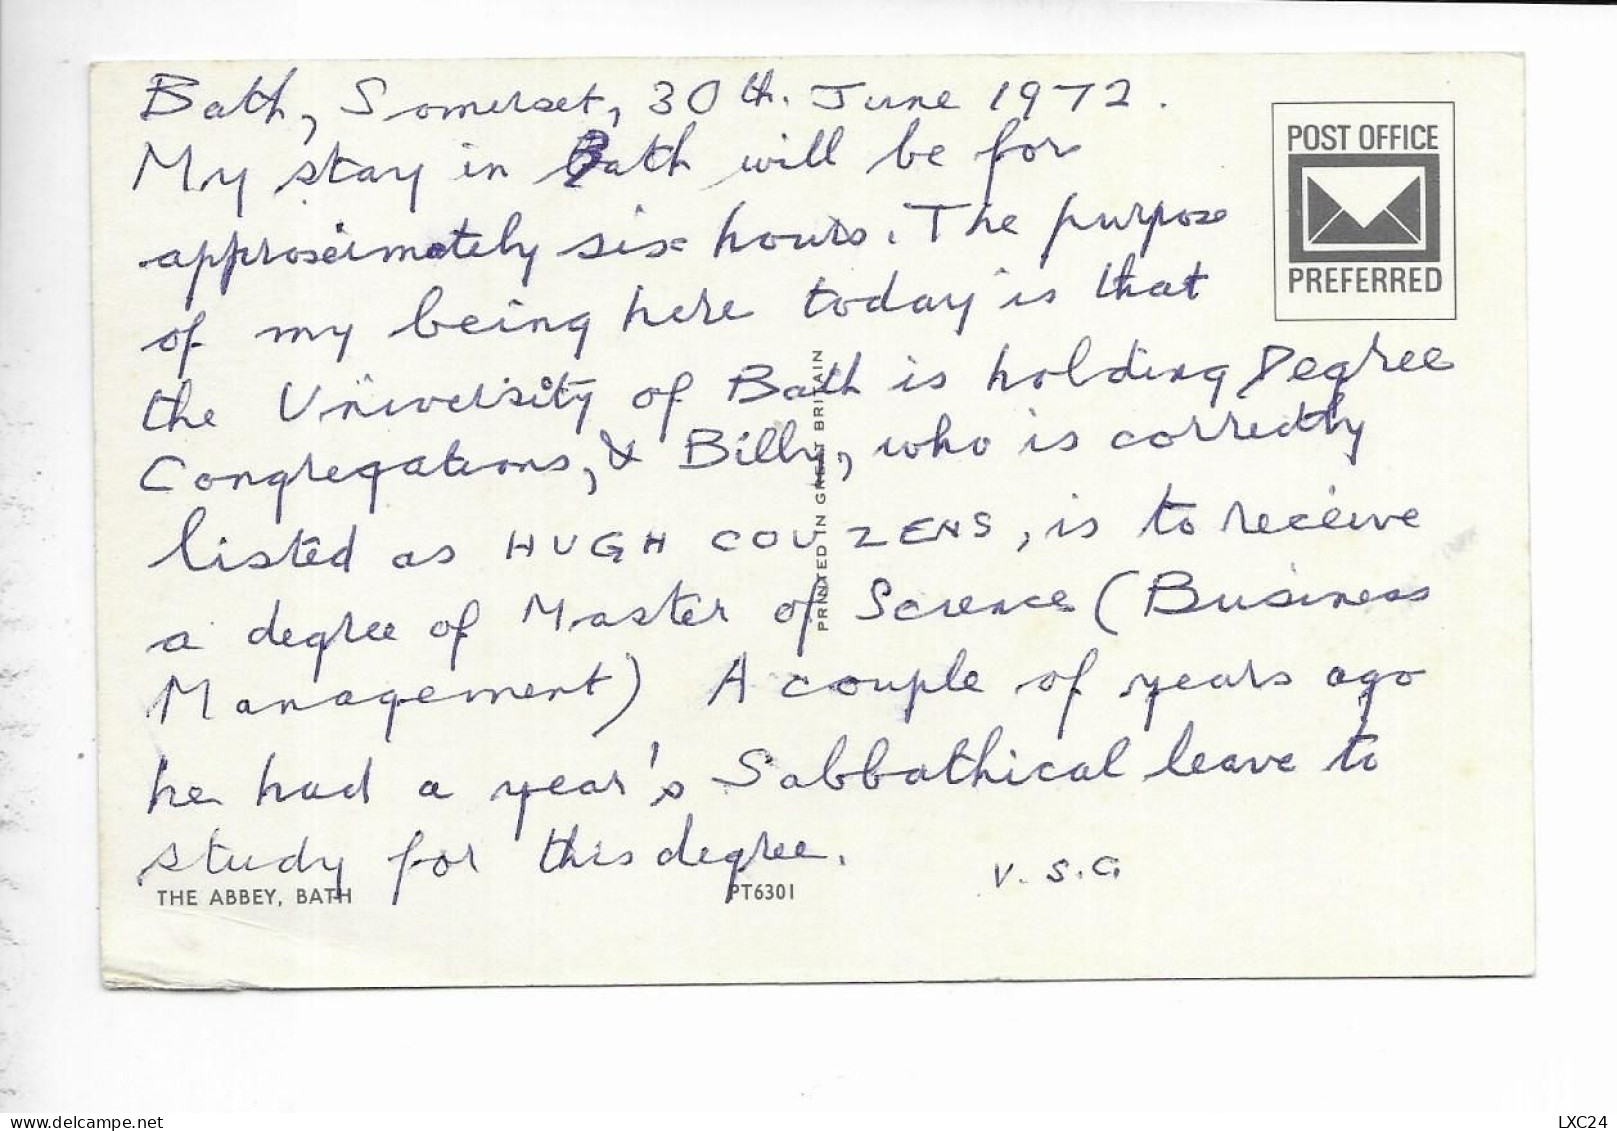 Bath, Somerset, 30th. June 1972.
My stay in Bath will be for
approximately six hours. The purpose
of my being here today is that
the University of Bath is holding Degree
Congregations, & Billy, who is correctly
listed as HUGH COUZENS, is to receive
a degree of Master of Science (Business
Management) A couple of years ago
he had a year's Sabbathical leave to
study for this degree.
V. S. C.
POST OFFICE
PREFERRED
PRINTED IN GREAT BRITAIN
THE ABBEY, BATH
PT6301
LXC24